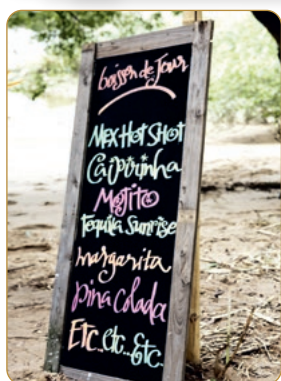 boisson de Jour
MEX HOT SHOT
Caipirinha
MOJITO
Tequila Sunrise
margarita
pina colada
Etc.. etc.. Etc..